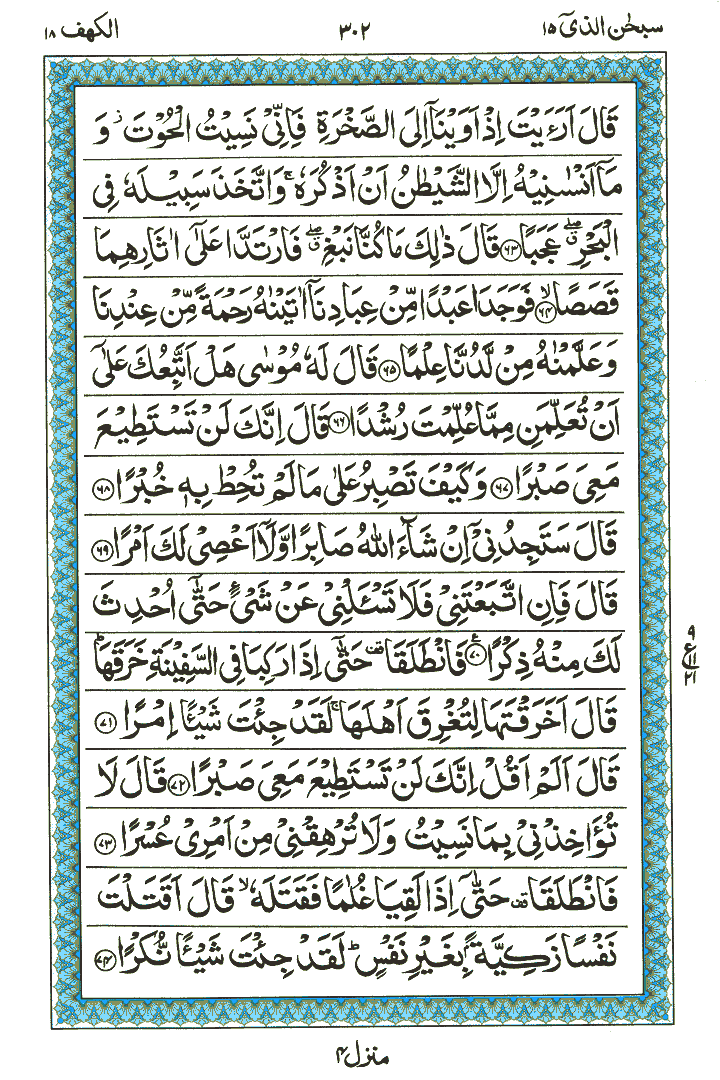 سبحٰن الذیٓ ۱۵
۳۰۲
الکهف ۱۸
قَالَ اَرَءَيْتَ اِذْ اَوَيْنَاۤ اِلَى الصَّخْرَةِ فَاِنِّىْ نَسِيْتُ الْحُوْتَ ؗ وَ
مَاۤ اَنْسٰىنِيْهُ اِلَّا الشَّيْطٰنُ اَنْ اَذْكُرَهٗ ۚ وَاتَّخَذَ سَبِيْلَهٗ فِى
الْبَحْرِ ۖۗ عَجَبًا ﴿۶۳﴾ قَالَ ذٰلِكَ مَا كُنَّا نَبْغِ ۖۗ فَارْتَدَّا عَلٰۤى اٰثَارِهِمَا
قَصَصًا ۙ﴿۶۴﴾ فَوَجَدَا عَبْدًا مِّنْ عِبَادِنَاۤ اٰتَيْنٰهُ رَحْمَةً مِّنْ عِنْدِنَا
وَعَلَّمْنٰهُ مِنْ لَّدُنَّا عِلْمًا ﴿۶۵﴾ قَالَ لَهٗ مُوْسٰى هَلْ اَتَّبِعُكَ عَلٰۤى
اَنْ تُعَلِّمَنِ مِمَّا عُلِّمْتَ رُشْدًا ﴿۶۶﴾ قَالَ اِنَّكَ لَنْ تَسْتَطِيْعَ
مَعِىَ صَبْرًا ﴿۶۷﴾ وَكَيْفَ تَصْبِرُ عَلٰى مَا لَمْ تُحِطْ بِهٖ خُبْرًا ﴿۶۸﴾
قَالَ سَتَجِدُنِىْۤ اِنْ شَآءَ اللّٰهُ صَابِرًا وَّلَاۤ اَعْصِىْ لَكَ اَمْرًا ﴿۶۹﴾
قَالَ فَاِنِ اتَّبَعْتَنِىْ فَلَا تَسْـَٔلْنِىْ عَنْ شَىْءٍ حَتّٰۤى اُحْدِثَ
لَكَ مِنْهُ ذِكْرًا ﴿۷۰﴾ فَانْطَلَقَا ۥ حَتّٰۤى اِذَا رَكِبَا فِى السَّفِيْنَةِ خَرَقَهَا ؕ
۹
ع
۱۱
۲۱
قَالَ اَخَرَقْتَهَا لِتُغْرِقَ اَهْلَهَا ۚ لَقَدْ جِئْتَ شَيْـًٔا اِمْرًا ﴿۷۱﴾
قَالَ اَلَمْ اَقُلْ اِنَّكَ لَنْ تَسْتَطِيْعَ مَعِىَ صَبْرًا ﴿۷۲﴾ قَالَ لَا
تُؤَاخِذْنِىْ بِمَا نَسِيْتُ وَلَا تُرْهِقْنِىْ مِنْ اَمْرِىْ عُسْرًا ﴿۷۳﴾
فَانْطَلَقَا ۥ حَتّٰۤى اِذَا لَقِيَا غُلٰمًا فَقَتَلَهٗ ۙ قَالَ اَقَتَلْتَ
نَفْسًا زَكِيَّةًۢ بِغَيْرِ نَفْسٍ ؕ لَقَدْ جِئْتَ شَيْـًٔا نُّكْرًا ﴿۷۴﴾
منزل ۴